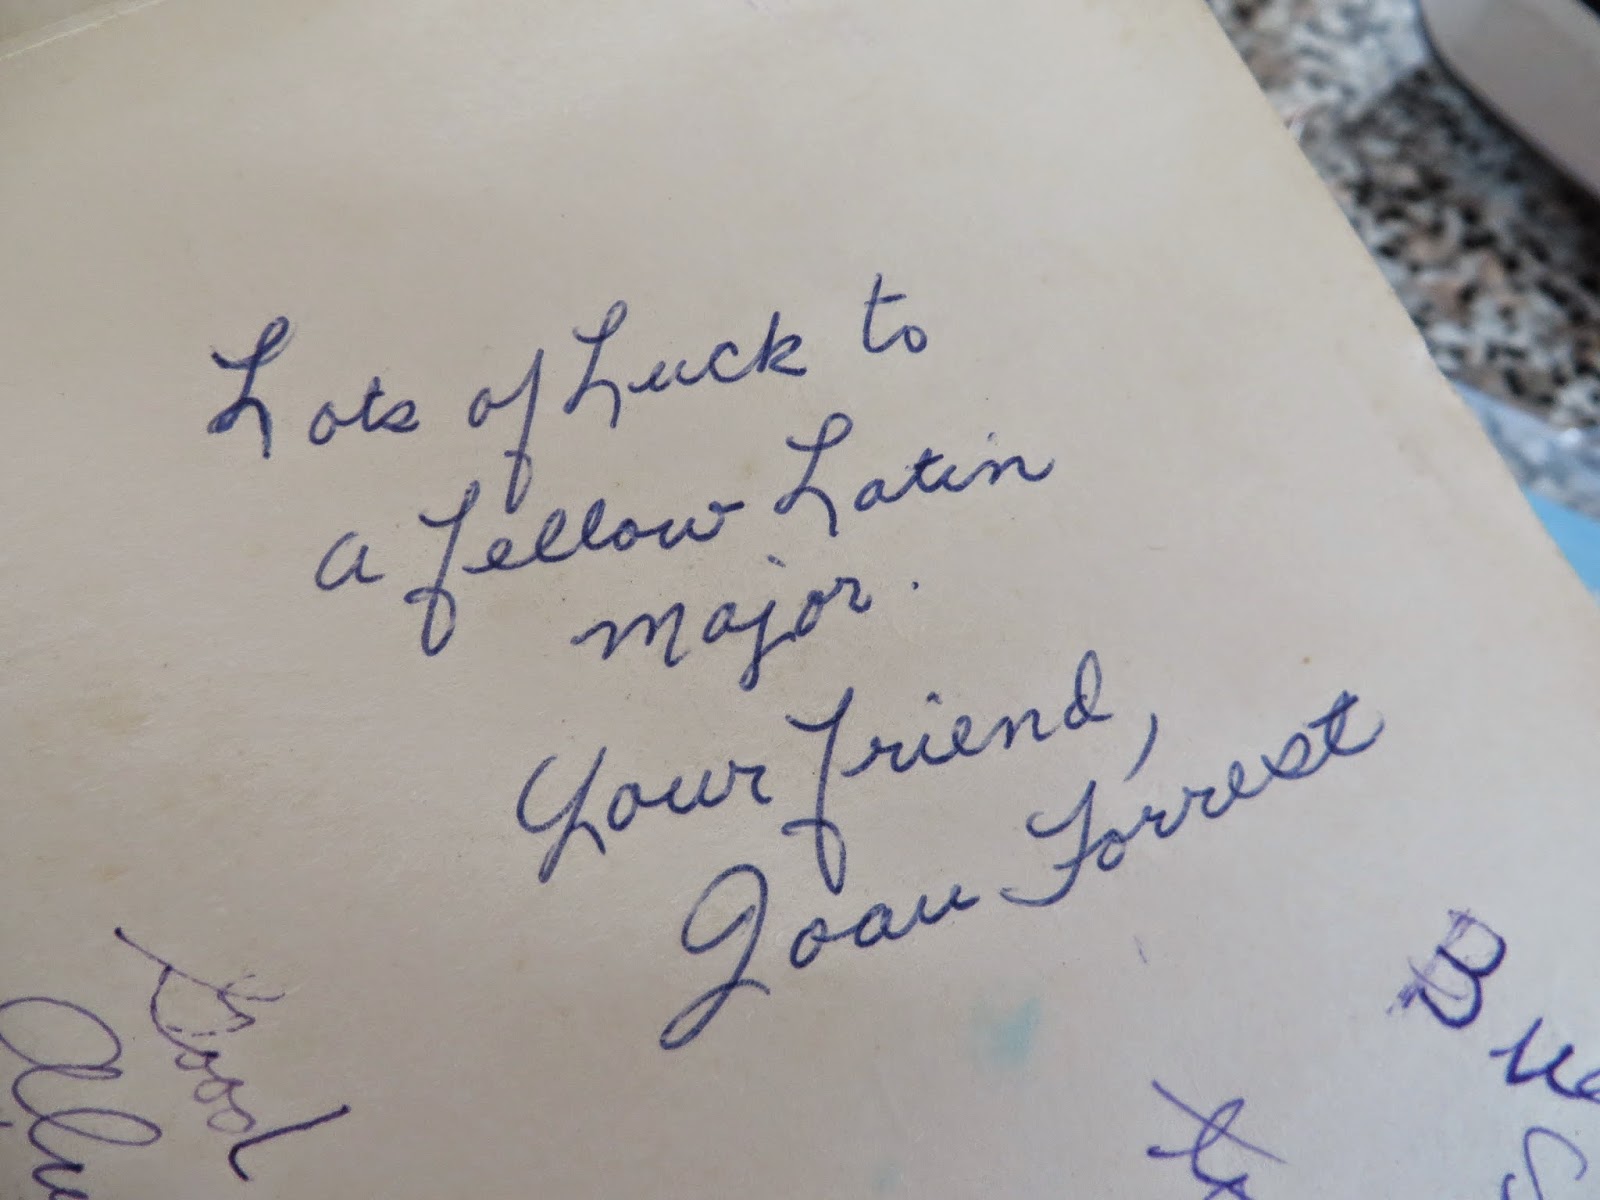 Lots of Luck to
a fellow Latin
major.
Your friend,
Joan Forrest
Good
to